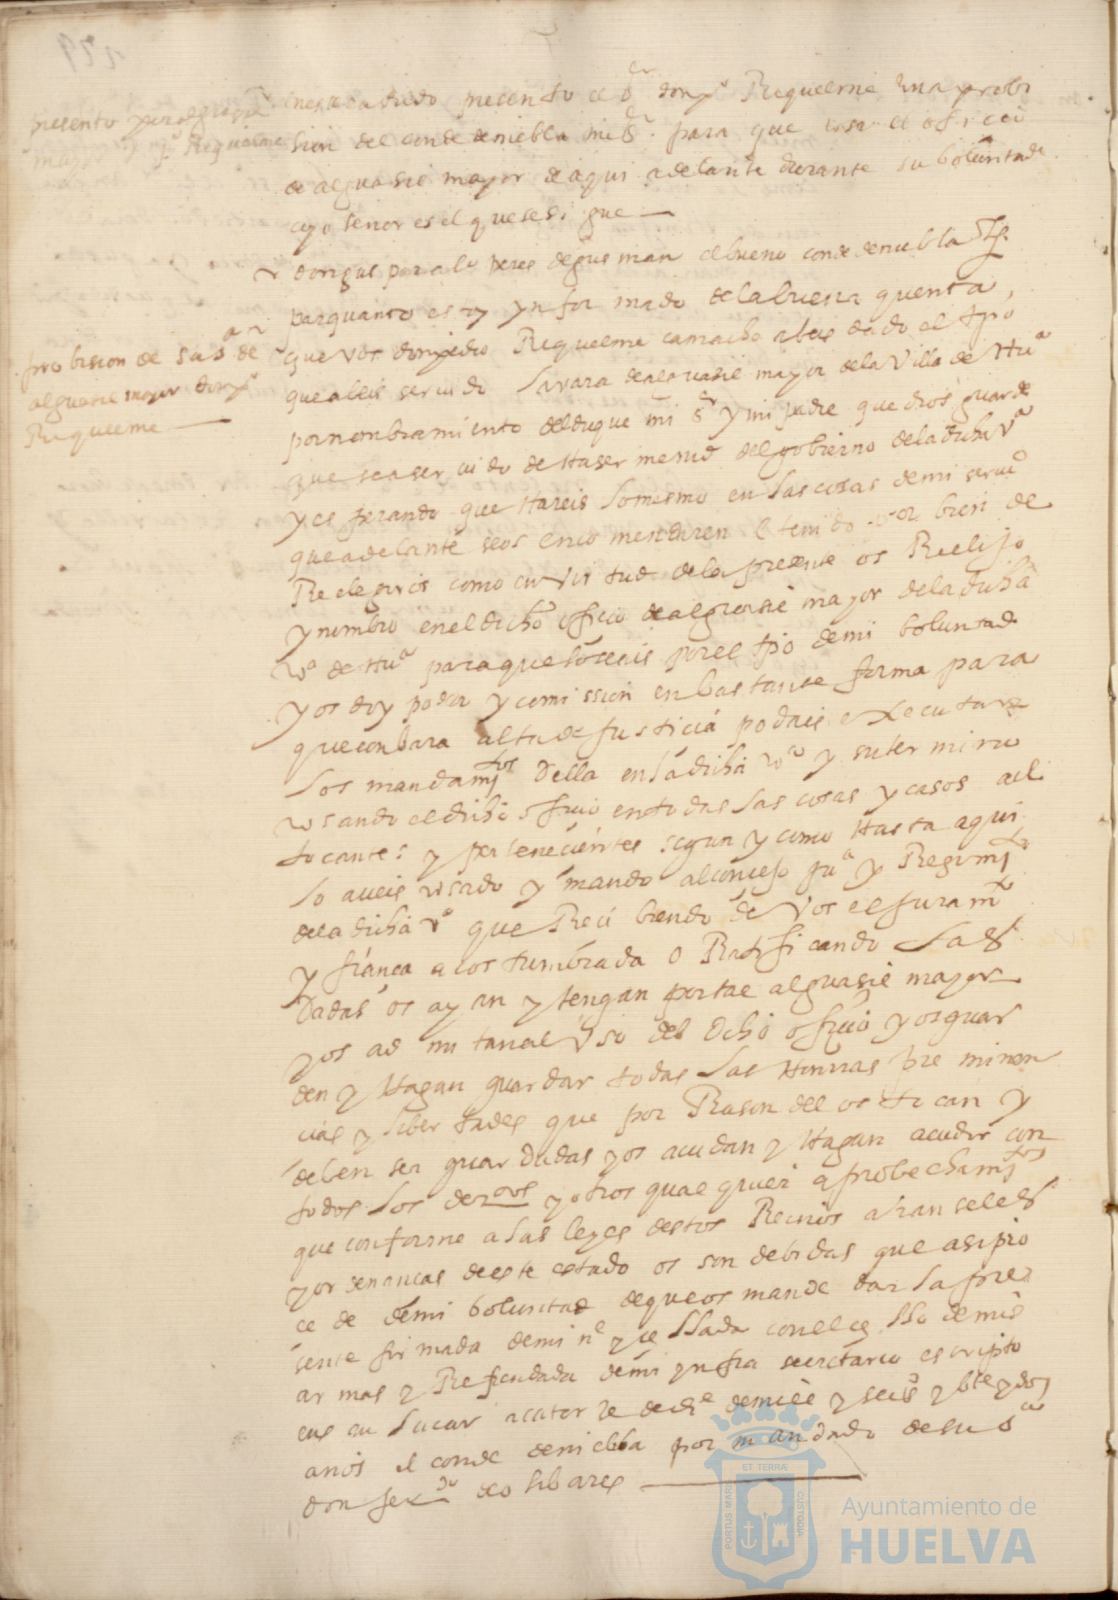 presento por alguasil
mayor Riquelme
en este cabildo presento el sr don po Riquelme una probi
sion del conde de niebla mi sr para que use el officio
de alguasil mayor de aqui adelante durante su boluntad
cuyo tenor es el que se si gue
don gas par alo peres de gus man el bueno conde de niebla
por quanto estoy ynfor mado de la buena quenta
que vos don pedro Riquelme camacho abeis dado el tpo
que abeis servido la vara de alguasil mayor de la Villa de Hua
por nombramiento del duque mi sr y mi padre que dios guarde
probision de su sa de
alguasil mayor don po
Riquelme
que sea ser vi do de Haser merced del gobierno de la dicha va
y es perando que Hareis lo mesmo en las cosas de mi servo
que adelante se os enco mendaren e teni do por bien de
Re elegiros como en vir tud de la presente os Reelijo
y nombro en el dicho officio de alguasil mayor de la dicha
va de Hua para que lo seais por el tpo de mi boluntad
y os doy poder y comission en bastante forma para
que con bara alta de justicia podais executar
los mandamtos della en la dicha va y su ter mino
usando el dicho officio en todas las cosas y casos a el
tocantes y pertenecientes segun y como Hasta aqui
lo aveis usado y mando al concejo jua y Regimto
de la dicha va que Reci biendo de vos el juramto
y fiança acos tumbrada o Ratifi cando las
dadas os ay an y tengan por tal alguasil mayor
y os ad mi tan al uso del dcho officio y os guar
den y Hagan guardar todas las Honrras pre minen
cias y liber tades que por Rason del os to can y
deben ser guar dadas y os acudan y Hagan acudir con
todos los deros y otros qual quier aprobechamtos
que conforme a las leyes destos Reinos aranceles
y ordenancas de este estado os son debidas que asi pro
ce de de mi boluntad de que os mande dar la pre
sente fir mada de mi ne y se llada con el se llo de mis
ar mas y Refrendada de mi ynfra secretario escripto
en san lucar a cator ze de de mill y seiso y bte y dos
años el conde de niebla por mandado de su sa
don ferdo de olibares
Ayuntamiento de
HUELVA
PORTUS MARIS
ET TERRÆ
CUSTODIA